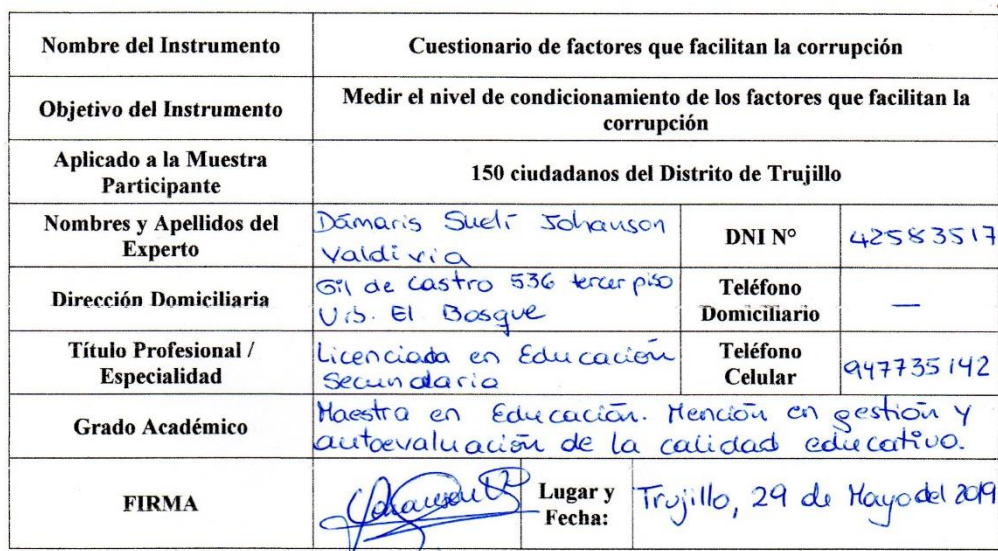 Nombre del Instrumento
Cuestionario de factores que facilitan la corrupción
Objetivo del Instrumento
Medir el nivel de condicionamiento de los factores que facilitan la
corrupción
Aplicado a la Muestra
Participante
150 ciudadanos del Distrito de Trujillo
Nombres y Apellidos del
Experto
Dámaris Suelí Johanson
Valdivia
DNI N°
42583517
Dirección Domiciliaria
Gil de Castro 536 tercer piso
Urb. El Bosque
Teléfono
Domiciliario
—
Título Profesional /
Especialidad
Licenciada en Educación
Secundaria
Teléfono
Celular
947735142
Grado Académico
Maestra en Educación. Mención en gestión y
autoevaluación de la calidad educativa.
FIRMA
Lugar y
Fecha:
Trujillo, 29 de Mayo del 2019